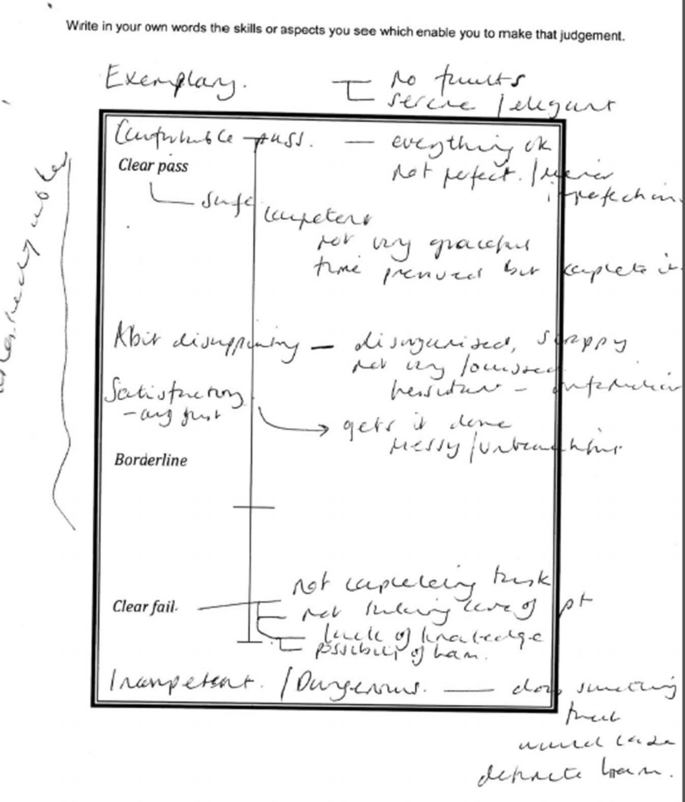 Write in your own words the skills or aspects you see which enable you to make that judgement.
Exemplary. no faults
serene / elegant
Comfortable pass. — everything ok
not perfect. / minor
imperfection.
Clear pass
safe competent
not very graceful
time pressured but complete it
A bit disappointing — disorganised, sloppy
not very focussed
hesitant -
Satisfactory
- any just
gets it done
messy /
Borderline
not completing task
Clear fail. not taking care of pt
lack of knowledge
possibility of harm.
Incompetent. / Dangerous. — does something
that
would cause
definite harm.